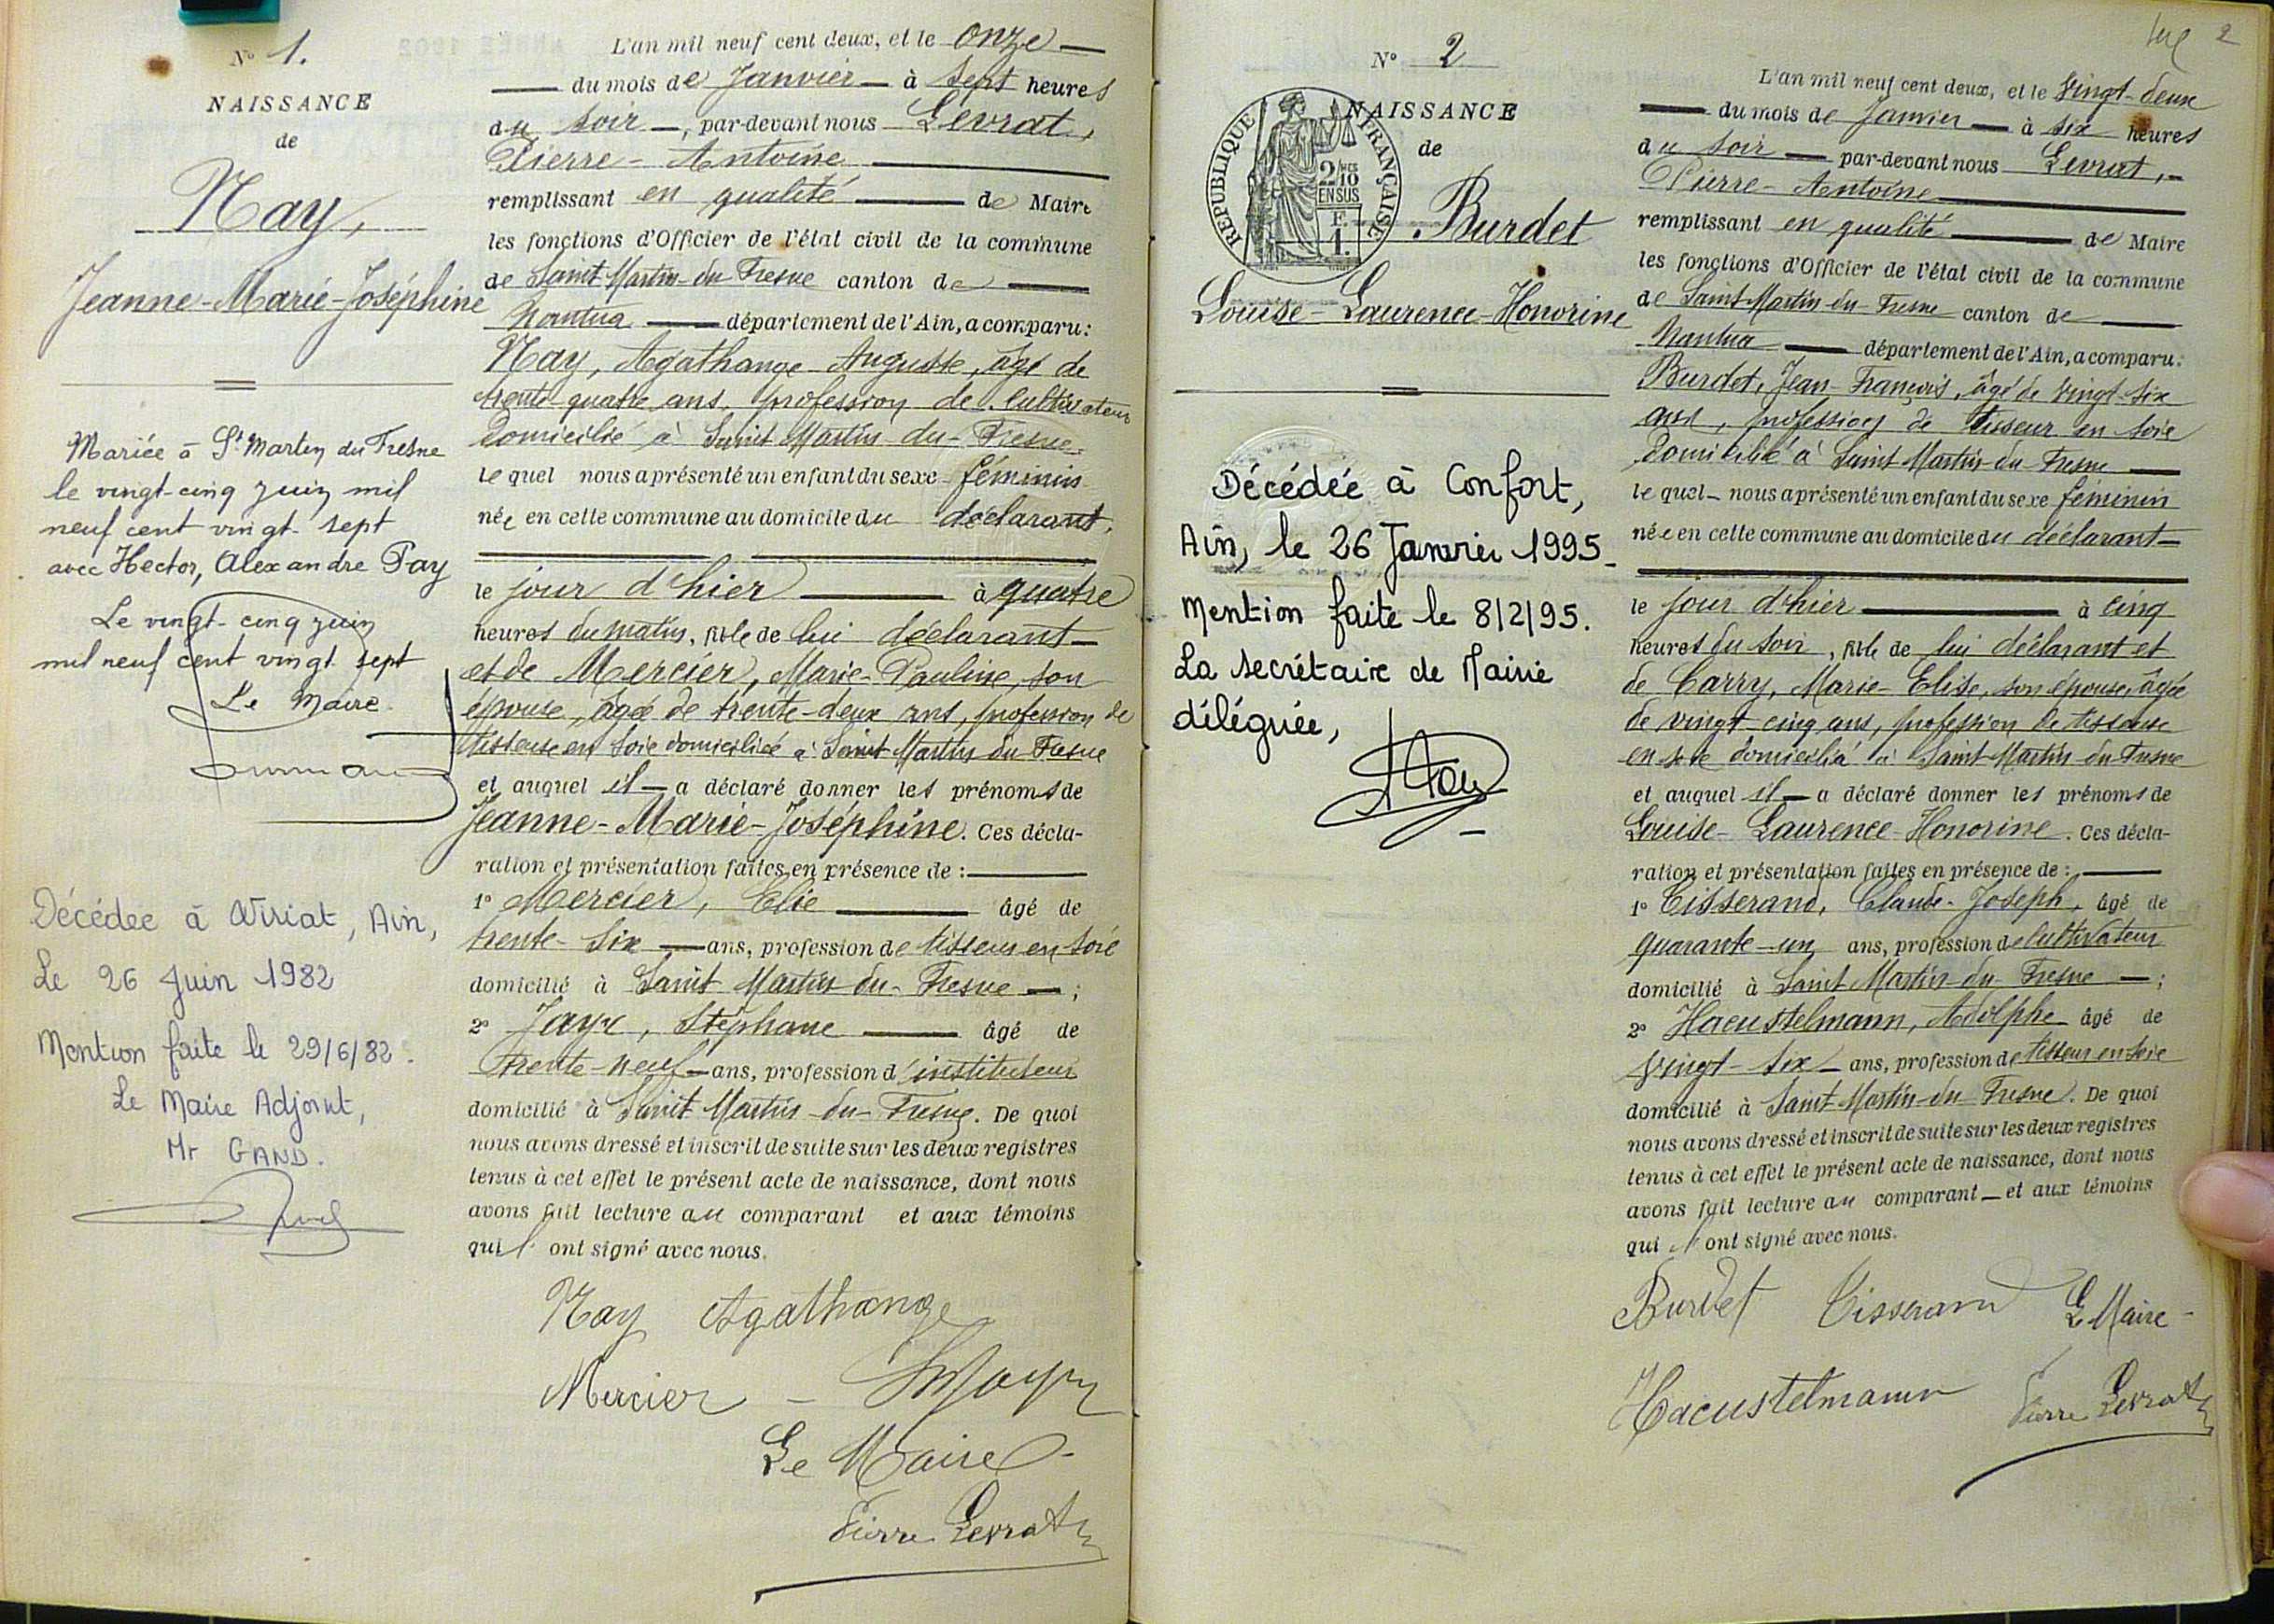 N° 1.
NAISSANCE
de
Nay,
Jeanne-Marie-Joséphine
Mariée à St Martin du Fresne
le vingt-cinq juin mil
neuf cent vingt-sept
avec Hector, Alexandre Pay
Le vingt-cinq juin
mil neuf cent vingt sept
Le Maire
Décédée à Viriat, Ain,
Le 26 Juin 1982
Mention faite le 29/6/82.
Le Maire Adjoint,
Mr GAND.
L'an mil neuf cent deux, et le onze
du mois de Janvier à sept heures
du soir, par-devant nous Levrat,
Pierre-Antoine
remplissant en qualité de Maire
les fonctions d'Officier de l'état civil de la commune
de Saint Martin-du-Fresne canton de
Nantua département de l'Ain, a comparu:
Nay, Agathange-Auguste, âgé de
trente-quatre ans, profession de cultivateur
domicilié à Saint Martin-du-Fresne
lequel nous a présenté un enfant du sexe féminin
née en cette commune au domicile du déclarant,
le jour d'hier à quatre
heures du matin, fille de lui déclarant
et de Mercier, Marie-Pauline, son
épouse, âgée de trente-deux ans, profession de
tisseuse en soie domiciliée à Saint Martin du Fresne
et auquel il a déclaré donner les prénoms de
Jeanne-Marie-Joséphine. Ces décla-
ration et présentation faites en présence de :
1° Mercier, Elie âgé de
trente-six ans, profession de tisseur en soie
domicilié à Saint Martin-du-Fresne ;
2° Jayr, Stéphane âgé de
trente-neuf ans, profession d'instituteur
domicilié à Saint Martin-du-Fresne. De quoi
nous avons dressé et inscrit de suite sur les deux registres
tenus à cet effet le présent acte de naissance, dont nous
avons fait lecture au comparant et aux témoins
qui l'ont signé avec nous.
Nay Agathange
Mercier
Le Maire
Pierre Levrat
2
N° 2
NAISSANCE
de
RÉPUBLIQUE FRANÇAISE
2/10
EN SUS
1.
Burdet
Louise-Laurence-Honorine
Décédée à Confort,
Ain, le 26 Janvier 1995.
Mention faite le 8/2/95.
La secrétaire de Mairie
déléguée,
L'an mil neuf cent deux, et le vingt-deux
du mois de Janvier à six heures
du soir par-devant nous Levrat,
Pierre-Antoine
remplissant en qualité de Maire
les fonctions d'Officier de l'état civil de la commune
de Saint-Martin-du-Fresne canton de
Nantua département de l'Ain, a comparu:
Burdet, Jean-François, âgé de vingt-six
ans, profession de tisseur en soie
domicilié à Saint Martin-du-Fresne
lequel nous a présenté un enfant du sexe féminin
née en cette commune au domicile du déclarant
le jour d'hier à cinq
heures du soir, fille de lui déclarant et
de Carry, Marie-Elise, son épouse, âgée
de vingt-cinq ans, profession de tisseuse
en soie domiciliée à Saint-Martin-du-Fresne
et auquel il a déclaré donner les prénoms de
Louise-Laurence-Honorine. Ces décla-
ration et présentation faites en présence de :
1° Tisserand, Claude-Joseph, âgé de
quarante-un ans, profession de cultivateur
domicilié à Saint Martin-du-Fresne ;
2° Haeustelmann, Adolphe âgé de
vingt-six ans, profession de tisseur en soie
domicilié à Saint-Martin-du-Fresne. De quoi
nous avons dressé et inscrit de suite sur les deux registres
tenus à cet effet le présent acte de naissance, dont nous
avons fait lecture au comparant et aux témoins
qui l'ont signé avec nous.
Burdet Tisserand Le Maire
Haeustelmann Pierre Levrat